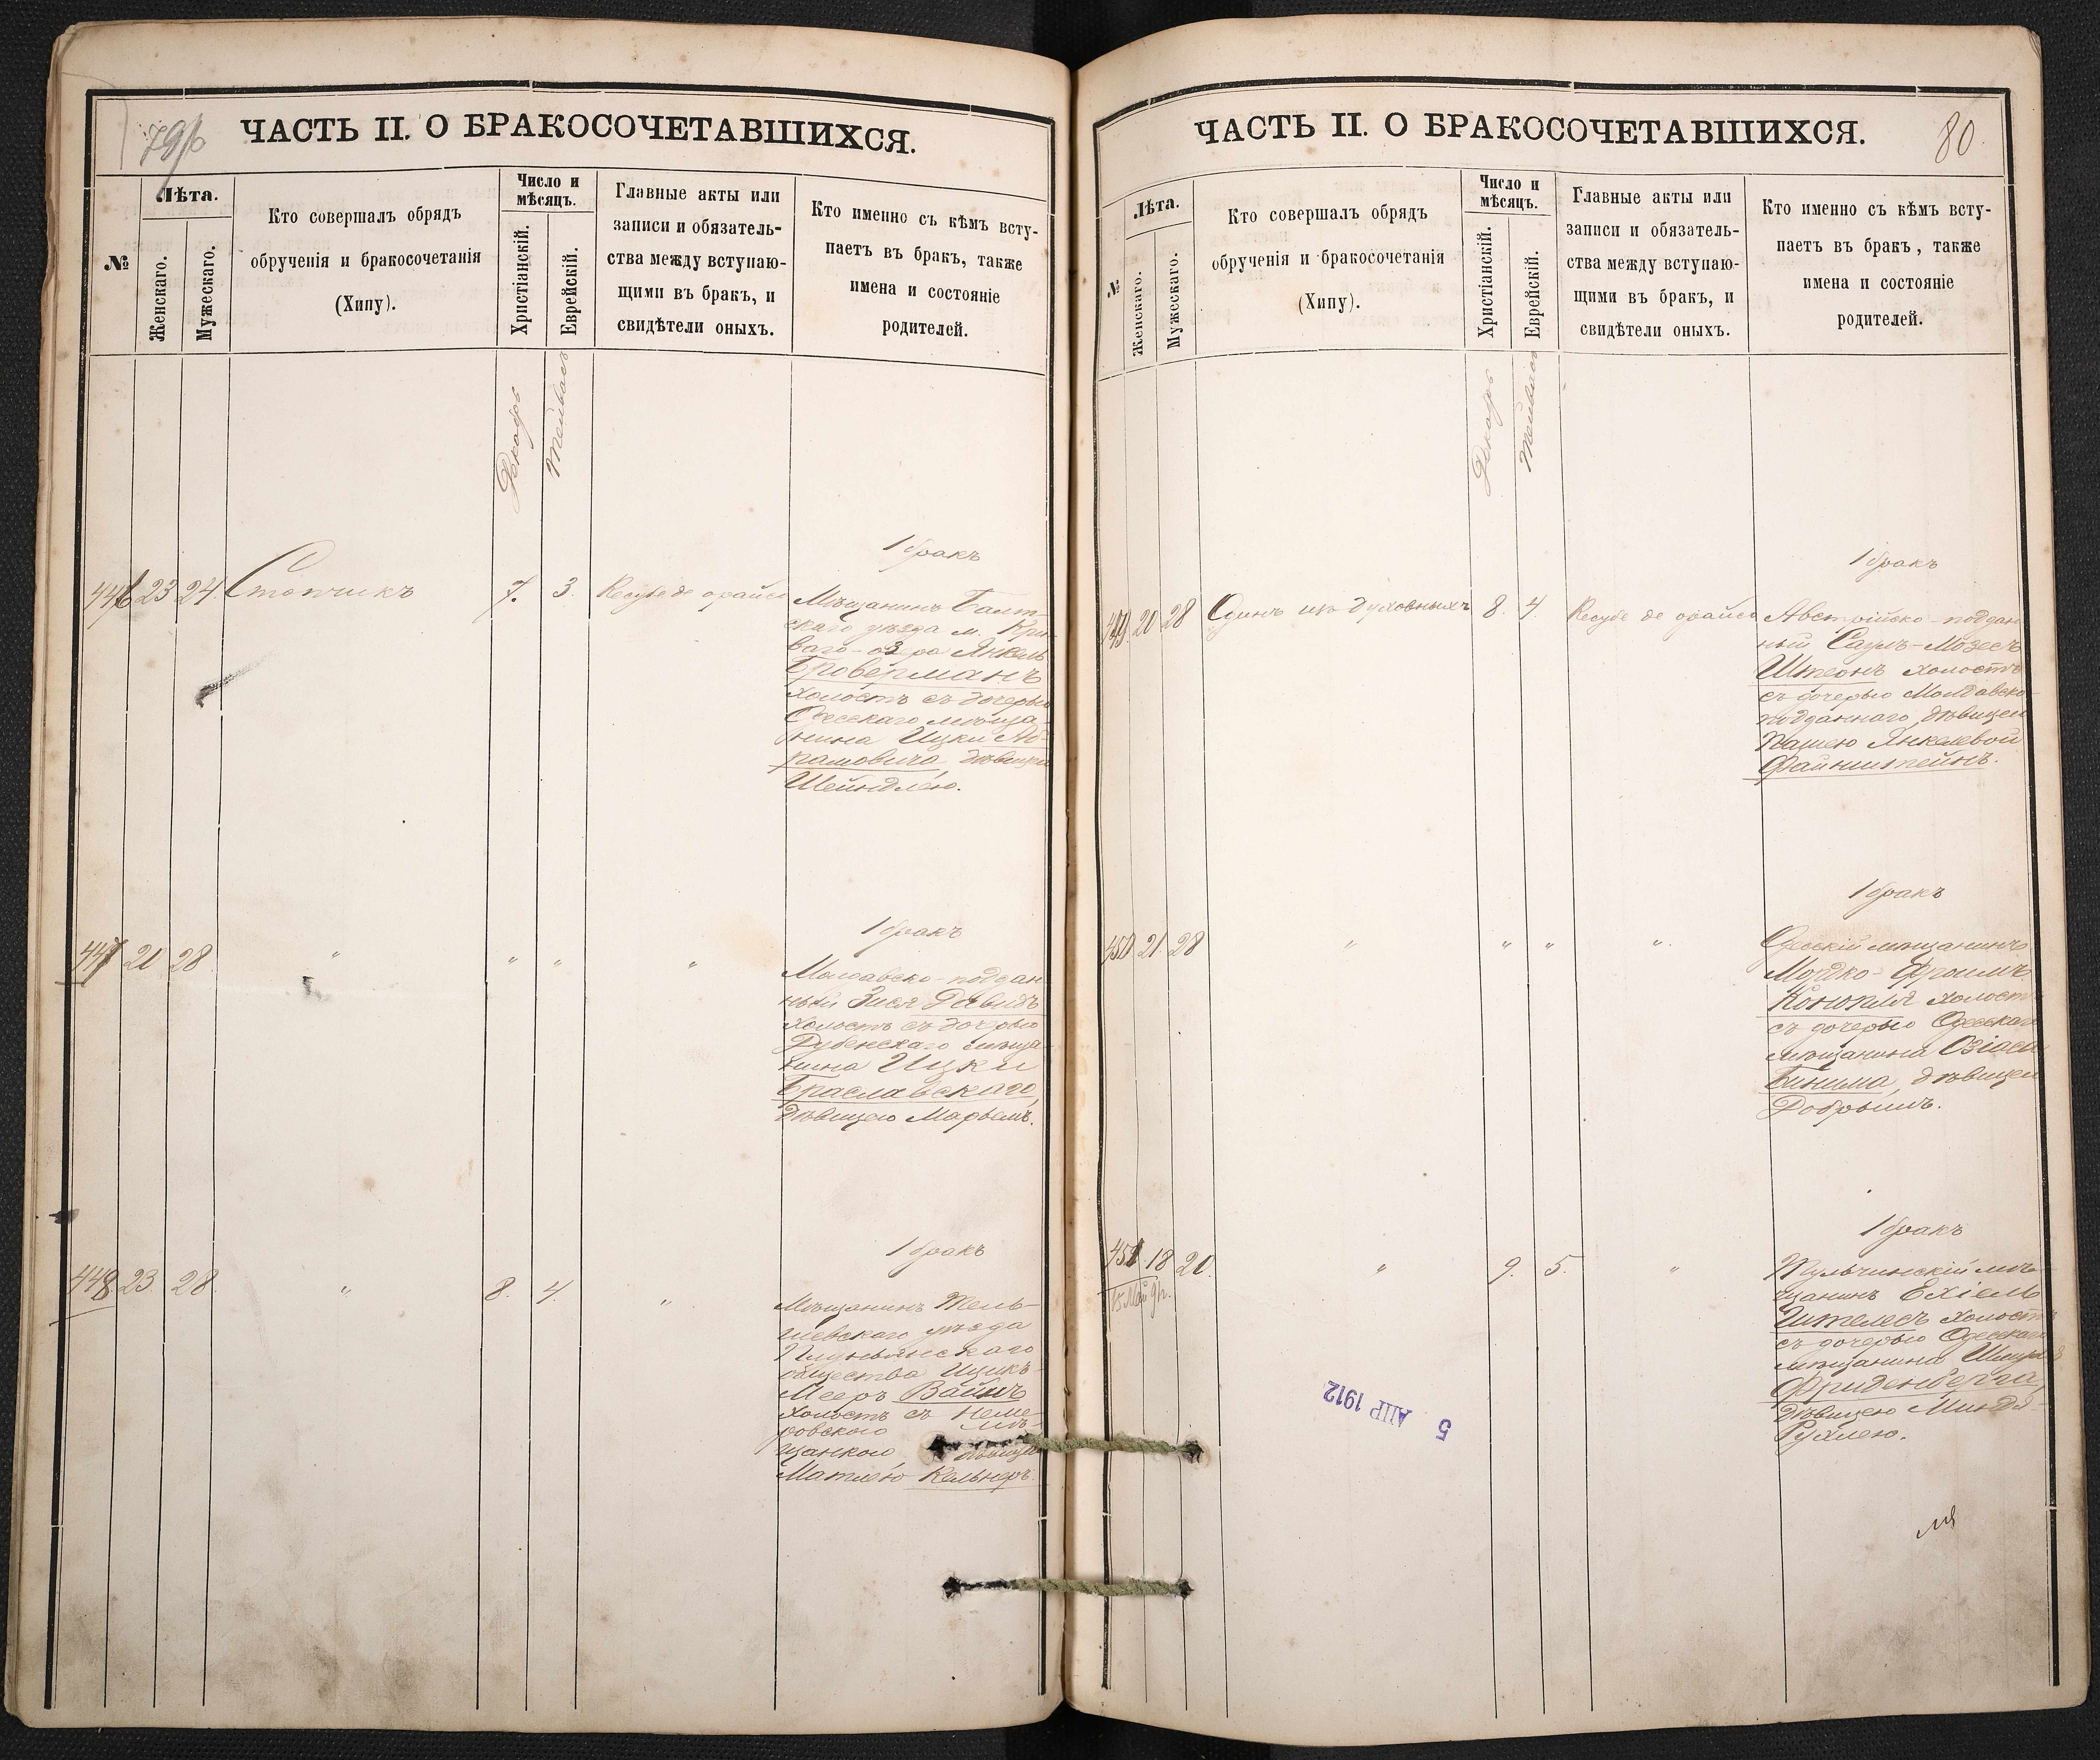 79/б
ЧАСТЬ II. О БРАКОСОЧЕТАВШИХСЯ.
№
Лѣта.
Женскаго.
Мужескаго.
Кто совершалъ обрядъ
обрученія и бракосочетанія
(Хипу).
Число и
мѣсяцъ.
Христіанскій.
Еврейскій.
Главные акты или
записи и обязатель-
ства между вступаю-
щими въ бракъ, и
свидѣтели оныхъ.
Кто именно съ кѣмъ всту-
паетъ въ бракъ, также
имена и состояніе
родителей.
Декабрь
Тейвесъ
1 бракъ
446 23 24 Стопчикъ 7. 3. Кесубе де орайса
Мѣщанинъ Балт-
скаго уѣзда м. Кри-
ваго-оз ра Янкель
Броверманъ
холостъ съ дочерью
Одесскаго мѣща-
нина Ицки Аб-
рамовича, дѣвицею
Шейндлею.
1 бракъ
447 21 28 " " " "
Молдавско-поддан-
ный Зися Давидъ
холостъ съ дочерью
Дубенскаго мѣща-
нина Ицки
Браславскаго,
дѣвицею Марьемъ.
1 бракъ
448 23. 28. " 8. 4. "
Мѣщанинъ Тель-
шевскаго уѣзда
Плунянскаго
общества Ицикъ-
Мееръ Вайнъ
холостъ съ Неми-
ровскою мѣ-
щанкою, дѣвицею
Матлею Кельнеръ.
ЧАСТЬ II. О БРАКОСОЧЕТАВШИХСЯ.
80.
№
Лѣта.
Женскаго.
Мужескаго.
Кто совершалъ обрядъ
обрученія и бракосочетанія
(Хипу).
Число и
мѣсяцъ.
Христіанскій.
Еврейскій.
Главные акты или
записи и обязатель-
ства между вступаю-
щими въ бракъ, и
свидѣтели оныхъ.
Кто именно съ кѣмъ всту-
паетъ въ бракъ, также
имена и состояніе
родителей.
Декабрь
Тейвесъ
1 бракъ
449. 20 28 Одинъ изъ духовныхъ 8. 4. Кесубе де орайса
Австрійско-поддан-
ный Саулъ-Мозесъ
Штернъ холостъ
съ дочерью Молдавско-
подданнаго, дѣвицею
Пашею Янкелевой
Файнштейнъ.
1 бракъ
450 21 28 " " " "
Одесскій мѣщанинъ
Мордко-Фроимъ
Конюхля холостъ
съ дочерью Одесскаго
мѣщанина Озіаса
Бинима, дѣвицею
Добрышъ.
1 бракъ
451 18 20. " 9. 5. "
Тульчинскій мѣ-
щанинъ Ехіель
Штелесъ холостъ
съ дочерью Одесскаго
мѣщанина
Фриденберга,
дѣвицею Миндя-
Рухлею.
5 АПР 1912